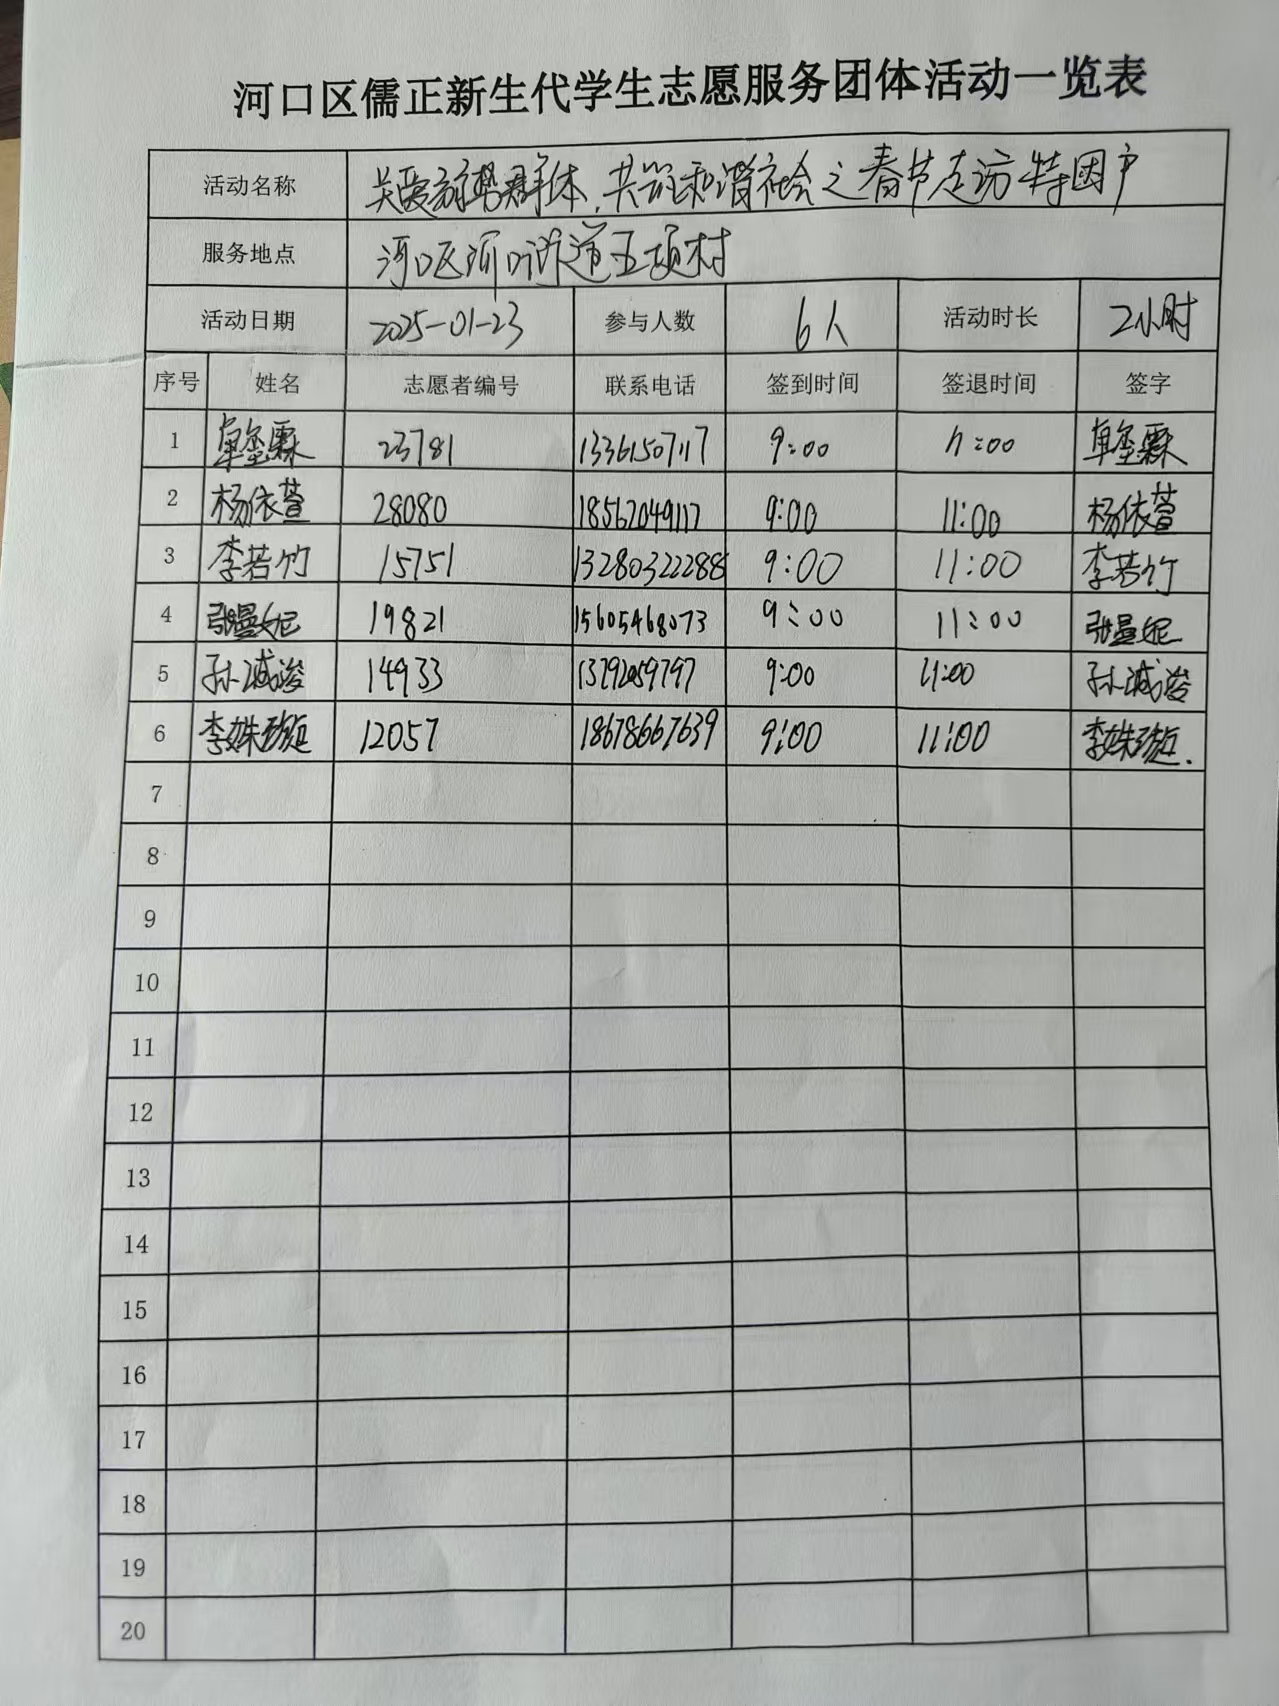 河口区儒正新生代学生志愿服务团体活动一览表
活动名称 关爱弱势群体,共筑和谐社会之春节走访特困户
服务地点 河口区河口街道五顷村
活动日期 2025-01-23 参与人数 6人 活动时长 2小时
序号 姓名 志愿者编号 联系电话 签到时间 签退时间 签字
1 23781 13361507117 9:00 11:00
2 杨依萱 28080 18562049117 9:00 11:00 杨依萱
3 李若竹 15751 13280322288 9:00 11:00 李若竹
4 张曼妮 19821 15605468073 9:00 11:00 张曼妮
5 孙诚浚 14933 13792059797 9:00 11:00 孙诚浚
6 12057 18678667639 9:00 11:00
7
8
9
10
11
12
13
14
15
16
17
18
19
20